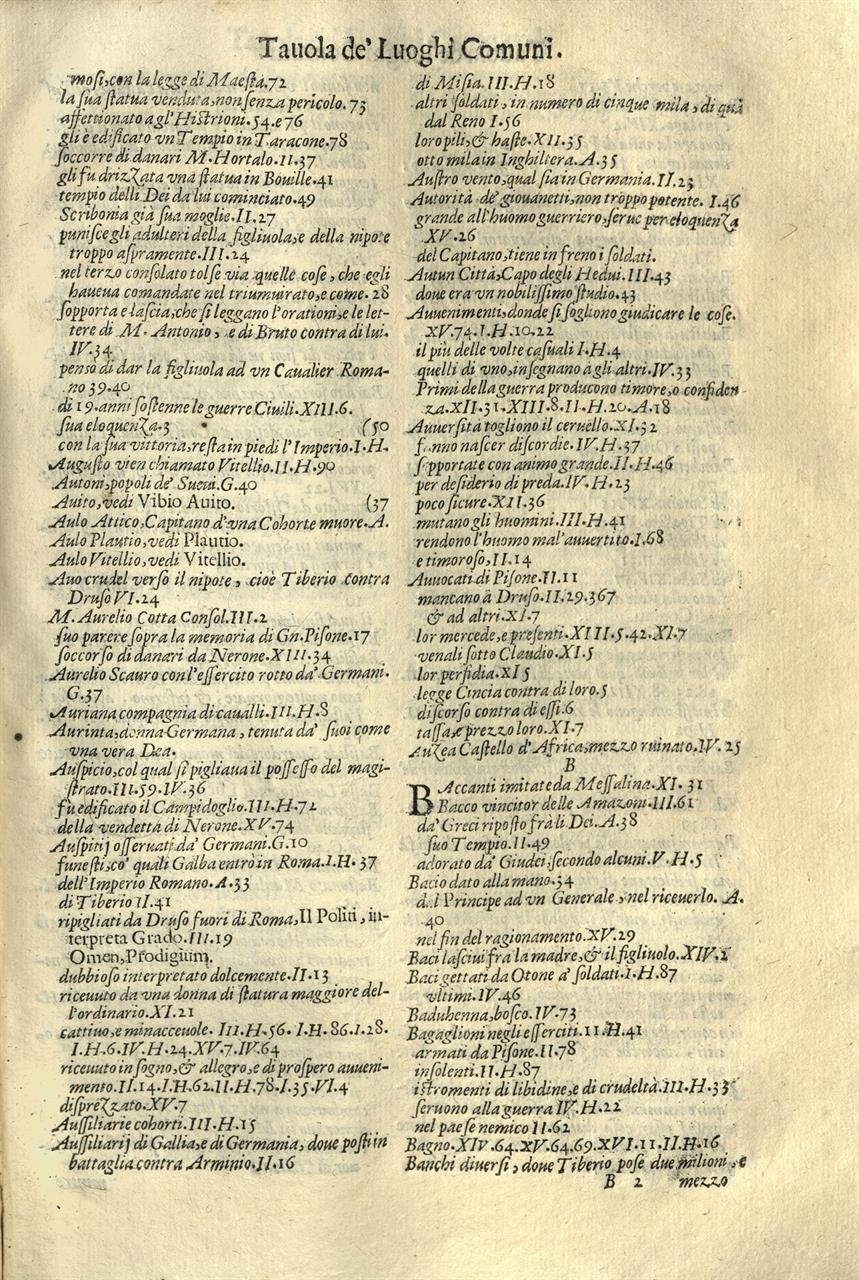 Tauola de' Luoghi Comuni.
mosi, con la legge di Maesta.72
la sua statua venduta, non senza pericolo. 73
affettionato a gl'Histrioni.54.e 76
gli è edificato vn Tempio in Taracone.78
soccorre di danari M. Hortalo.II.37
gli fu drizzata vna statua in Bouille.41
tempio delli Dei da lui cominciato.49
Scribonia già sua moglie.II.27
punisce gli adulteri della figliuola, e della nipote
troppo aspramente.III.24
nel terzo consolato tolse via quelle cose, che egli
haueua comandate nel triumuirato, e come. 28
sopporta e lascia, che si leggano l'orationi, e le let-
tere di M. Antonio, e di Bruto contra di lui.
IV.34
pensò di dar la figliuola ad vn Caualier Roma-
no 39.40
di 19. anni sostenne le guerre Ciuili.XIII.6.
sua eloquenza.3 (50
con la sua vittoria, resta in piedi l'Imperio.I.H.
Augusto vien chiamato Vitellio.II.H.90
Autoni, popoli de' Sueui.G.40
Auito, vedi Vibio Auito. (37
Aulo Attico, Capitano d'vna Cohorte muore.A.
Aulo Plautio, vedi Plautio.
Aulo Vitellio, vedi Vitellio.
Auo crudel verso il nipote, cioè Tiberio contra
Druso VI.24
M. Aurelio Cotta Consol.III.2
suo parere sopra la memoria di Gn. Pisone.17
soccorso di danari da Nerone.XIII.34
Aurelio Scauro con l'essercito rotto da' Germani.
G.37
Auriana compagnia di caualli.III.H.8
Aurinta, donna Germana, tenuta da' suoi come
vna vera Dea.
Auspicio, col qual si pigliaua il possesso del magi-
strato.III.59.IV.36
fu edificato il Campidoglio.III.H.72
della vendetta di Nerone.XV.74
Auspitij osseruati da' Germani.G.10
funesti, co' quali Galba entrò in Roma.I.H. 37
dell'Imperio Romano.A.33
di Tiberio II.41
ripigliati da Druso fuori di Roma, Il Politi, in-
terpreta Grado.III.19
Omen, Prodigium.
dubbioso interpretato dolcemente.II.13
riceuuto da vna donna di statura maggiore del-
l'ordinario.XI.21
cattiuo, e minacceuole. III.H.56. I.H.86.I.28.
I.H.6.IV.H.24.XV.7.IV.64
riceuuto in sogno, & allegro, e di prospero auueni-
mento.II.14.I.H.62.II.H.78.I.35.VI.4
disprezzato.XV.7
Aussiliarie cohorti.III.H.15
Aussiliarij di Gallia, e di Germania, doue posti in
battaglia contra Arminio.II.16
di Misia.III.H.18
altri soldati, in numero di cinque mila, di quà
dal Reno I.56
loro pili, & haste.XII.35
otto mila in Inghiltera.A.35
Austro vento, qual sia in Germania.II.23
Autorità de' giouanetti, non troppo potente. I.46
grande all'huomo guerriero, serue per eloquenza
XV.26
del Capitano, tiene in freno i soldati.
Autun Città, Capo degli Hedui.III.43
doue era vn nobilissimo studio.43
Auuenimenti, donde si sogliono giudicare le cose.
XV.74.I.H.10.22
il più delle volte casuali I.H.4
quelli di vno, insegnano à gli altri.IV.33
Primi della guerra producono timore, o confiden
za.XII.31.XIII.8.II.H.20.A.18
Auuersità togliono il ceruello.XI.32
fanno nascer discordie.IV.H.37
sopportate con animo grande.II.H.46
per desiderio di preda.IV.H.23
poco sicure.XII.36
mutano gli huomini.III.H.41
rendono l'huomo mal'auuertito.I.68
e timoroso, II.14
Auuocati di Pisone.II.11
mancano à Druso.II.29.367
& ad altri.XI.7
lor mercede, e presenti.XIII.5.42.XI.7
venali sotto Claudio.XI.5
lor perfidia.XI5
legge Cincia contra di loro.5
discorso contra di essi.6
tassa, e prezzo loro.XI.7
Auzea Castello d'Africa, mezzo ruinato.IV. 25
B
BAccanti imitate da Messalina.XI. 31
Bacco vincitor delle Amazoni.III.61
da' Greci riposto frà li Dei.A.38
suo Tempio.II.49
adorato da' Giudei, secondo alcuni.V.H.5
Bacio dato alla mano.34
del Principe ad vn Generale, nel riceuerlo. A.
40
nel fin del ragionamento.XV.29
Baci lasciui fra la madre, & il figliuolo.XIV.2
Baci gettati da Otone a' soldati.I.H.87
vltimi.IV.46
Baduhenna, bosco.IV.73
Bagaglioni negli esserciti.II.H.41
armati da Pisone.II.78
insolenti.II.H.87
istromenti di libidine, e di crudeltà.III.H.33
seruono alla guerra IV.H.22
nel paese nemico II.62
Bagno.XIV.64.XV.64.69.XVI.11.II.H.16
Banchi diuersi, doue Tiberio pose due milioni, e
B 2 mezzo